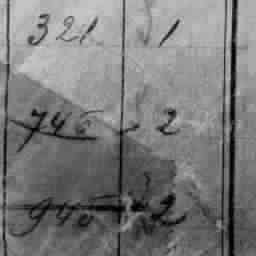 321 1
746 2
946 2